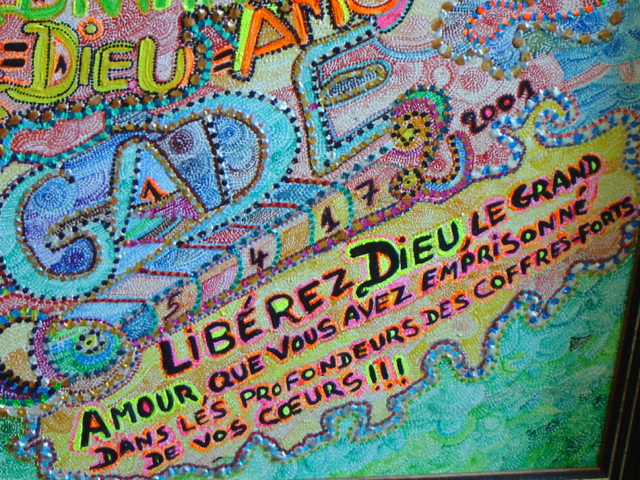 =DIEU=AMO
GADE
1
2001
5 4 1 7
LIBÉREZ DIEU, LE GRAND
AMOUR, QUE VOUS AVEZ EMPRISONNÉ
DANS LES PROFONDEURS DES COFFRES-FORTS
DE VOS CŒURS !!!